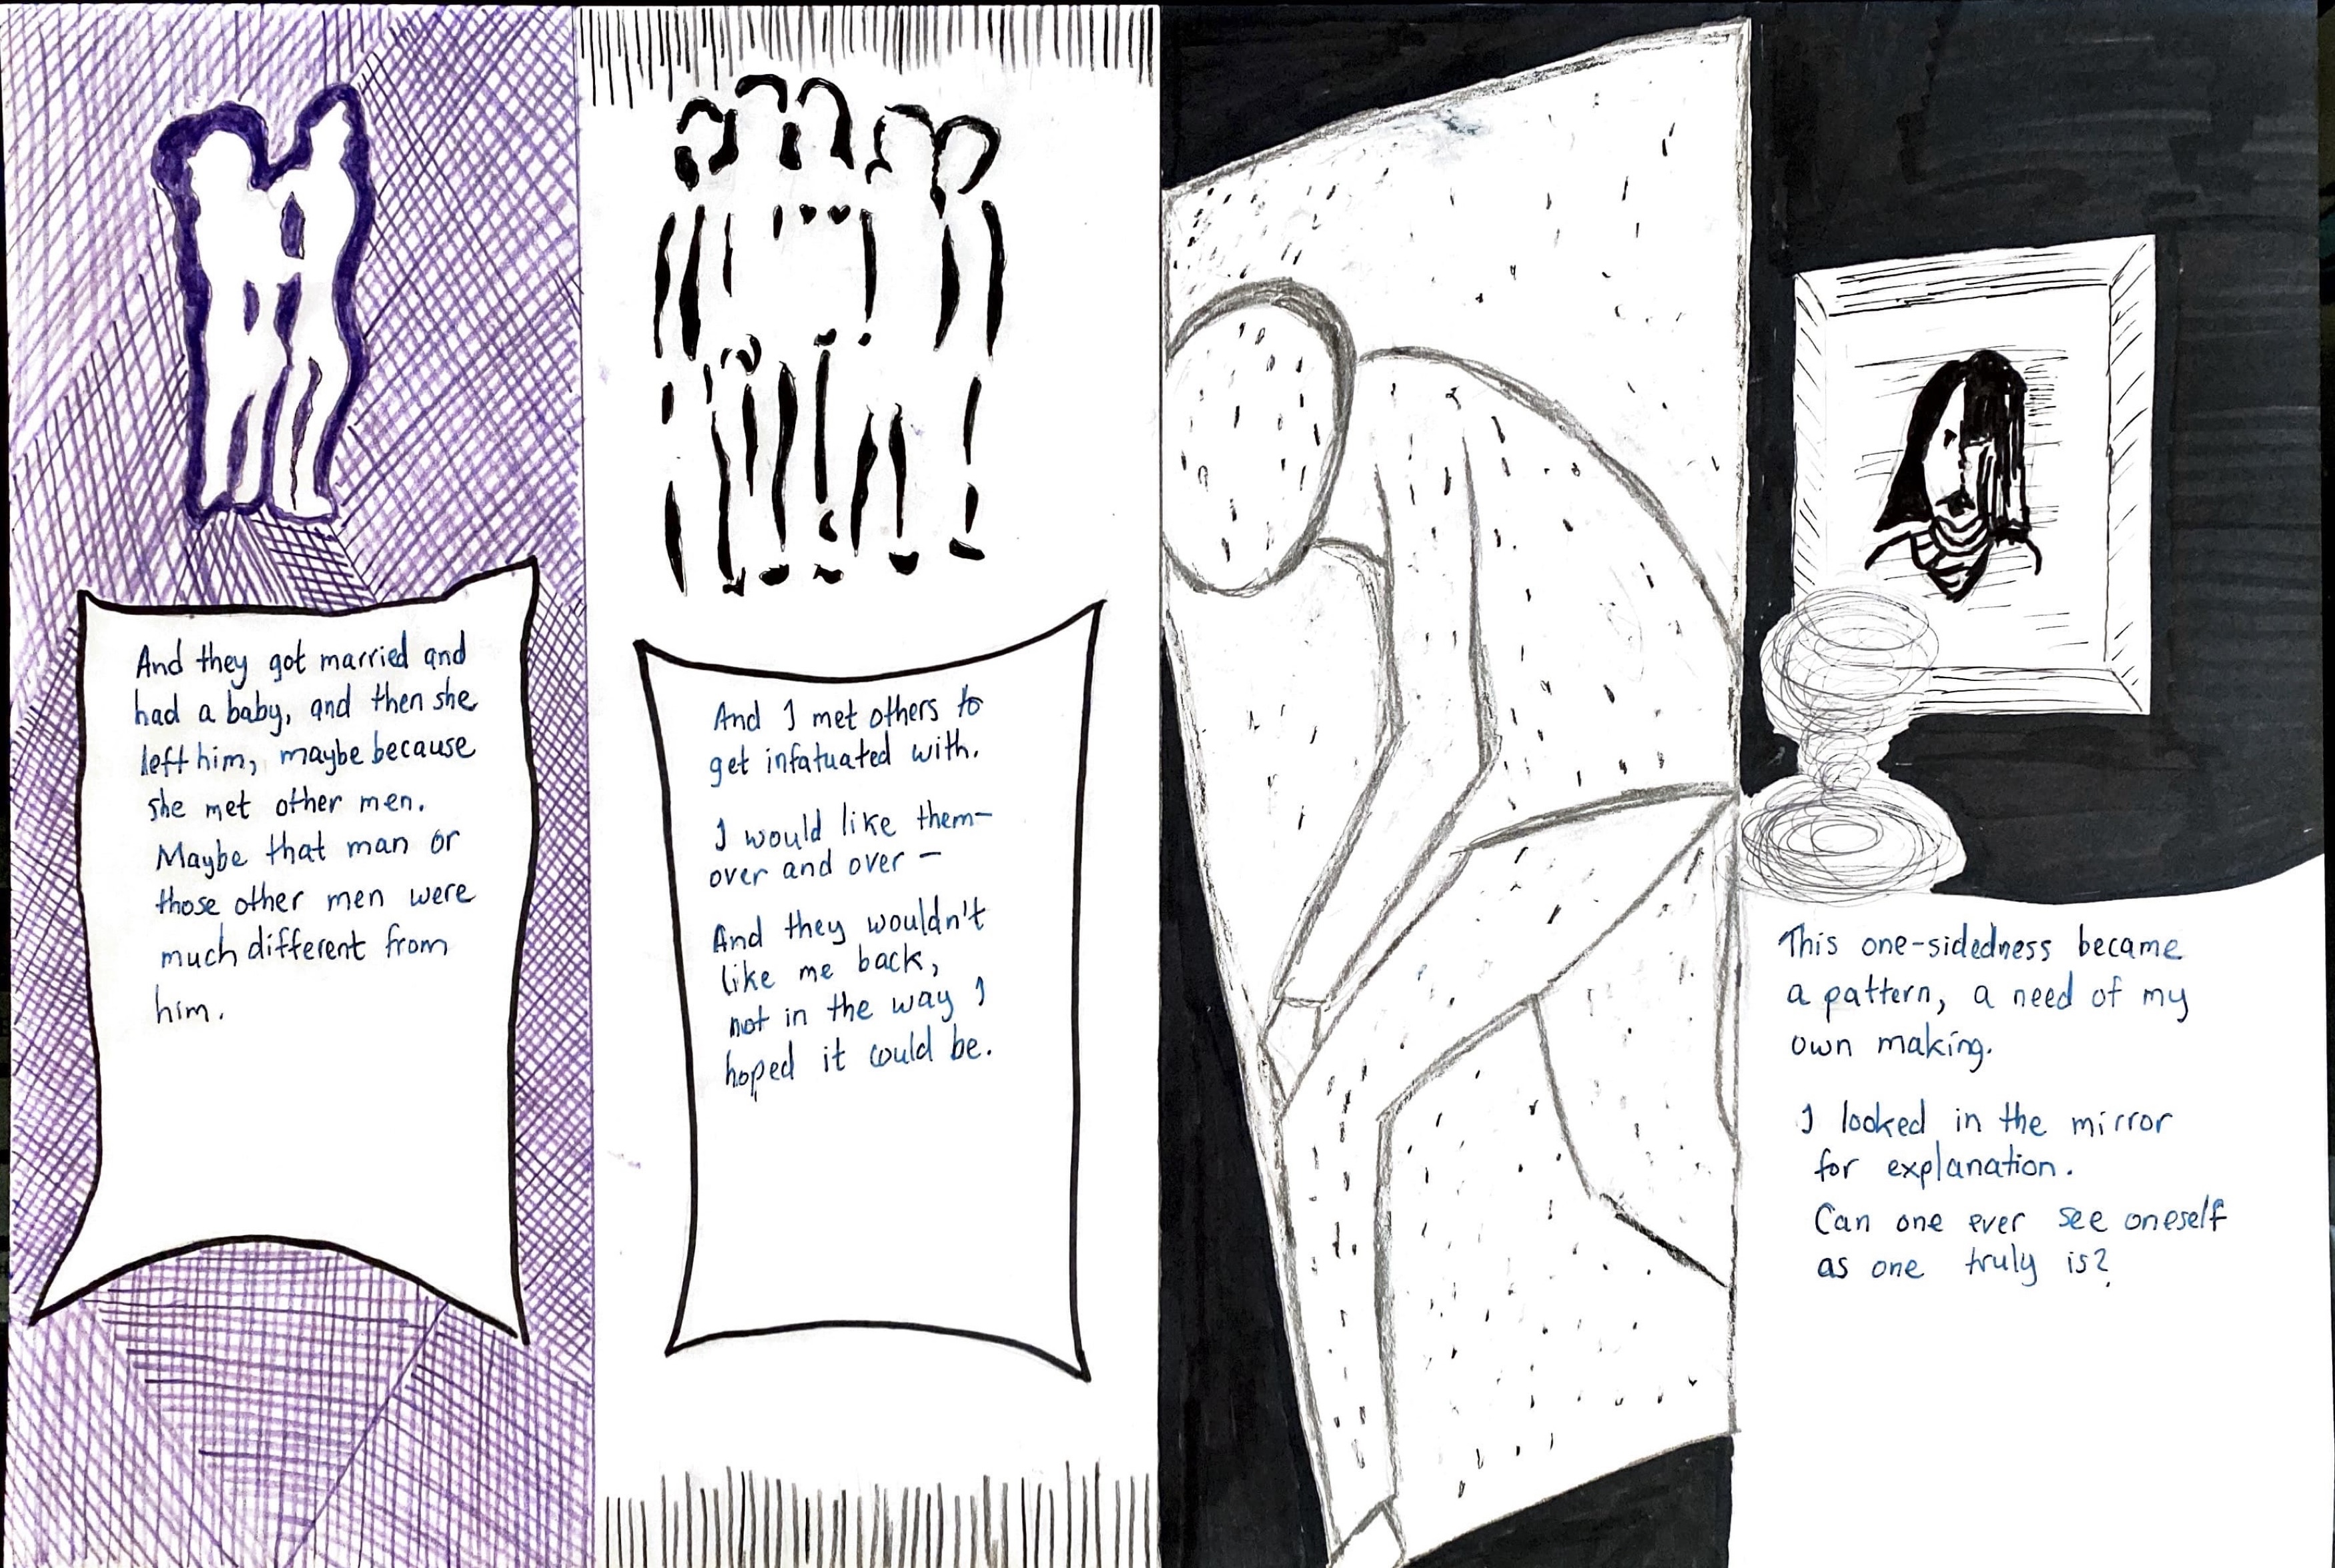 And they got married and
had a baby, and then she
left him, maybe because
she met other men.
Maybe that man or
those other men were
much different from
him.
And I met others to
get infatuated with.
I would like them—
over and over —
And they wouldn't
like me back,
not in the way I
hoped it could be.
This one-sidedness became
a pattern, a need of my
own making.
I looked in the mirror
for explanation.
Can one ever see oneself
as one truly is?